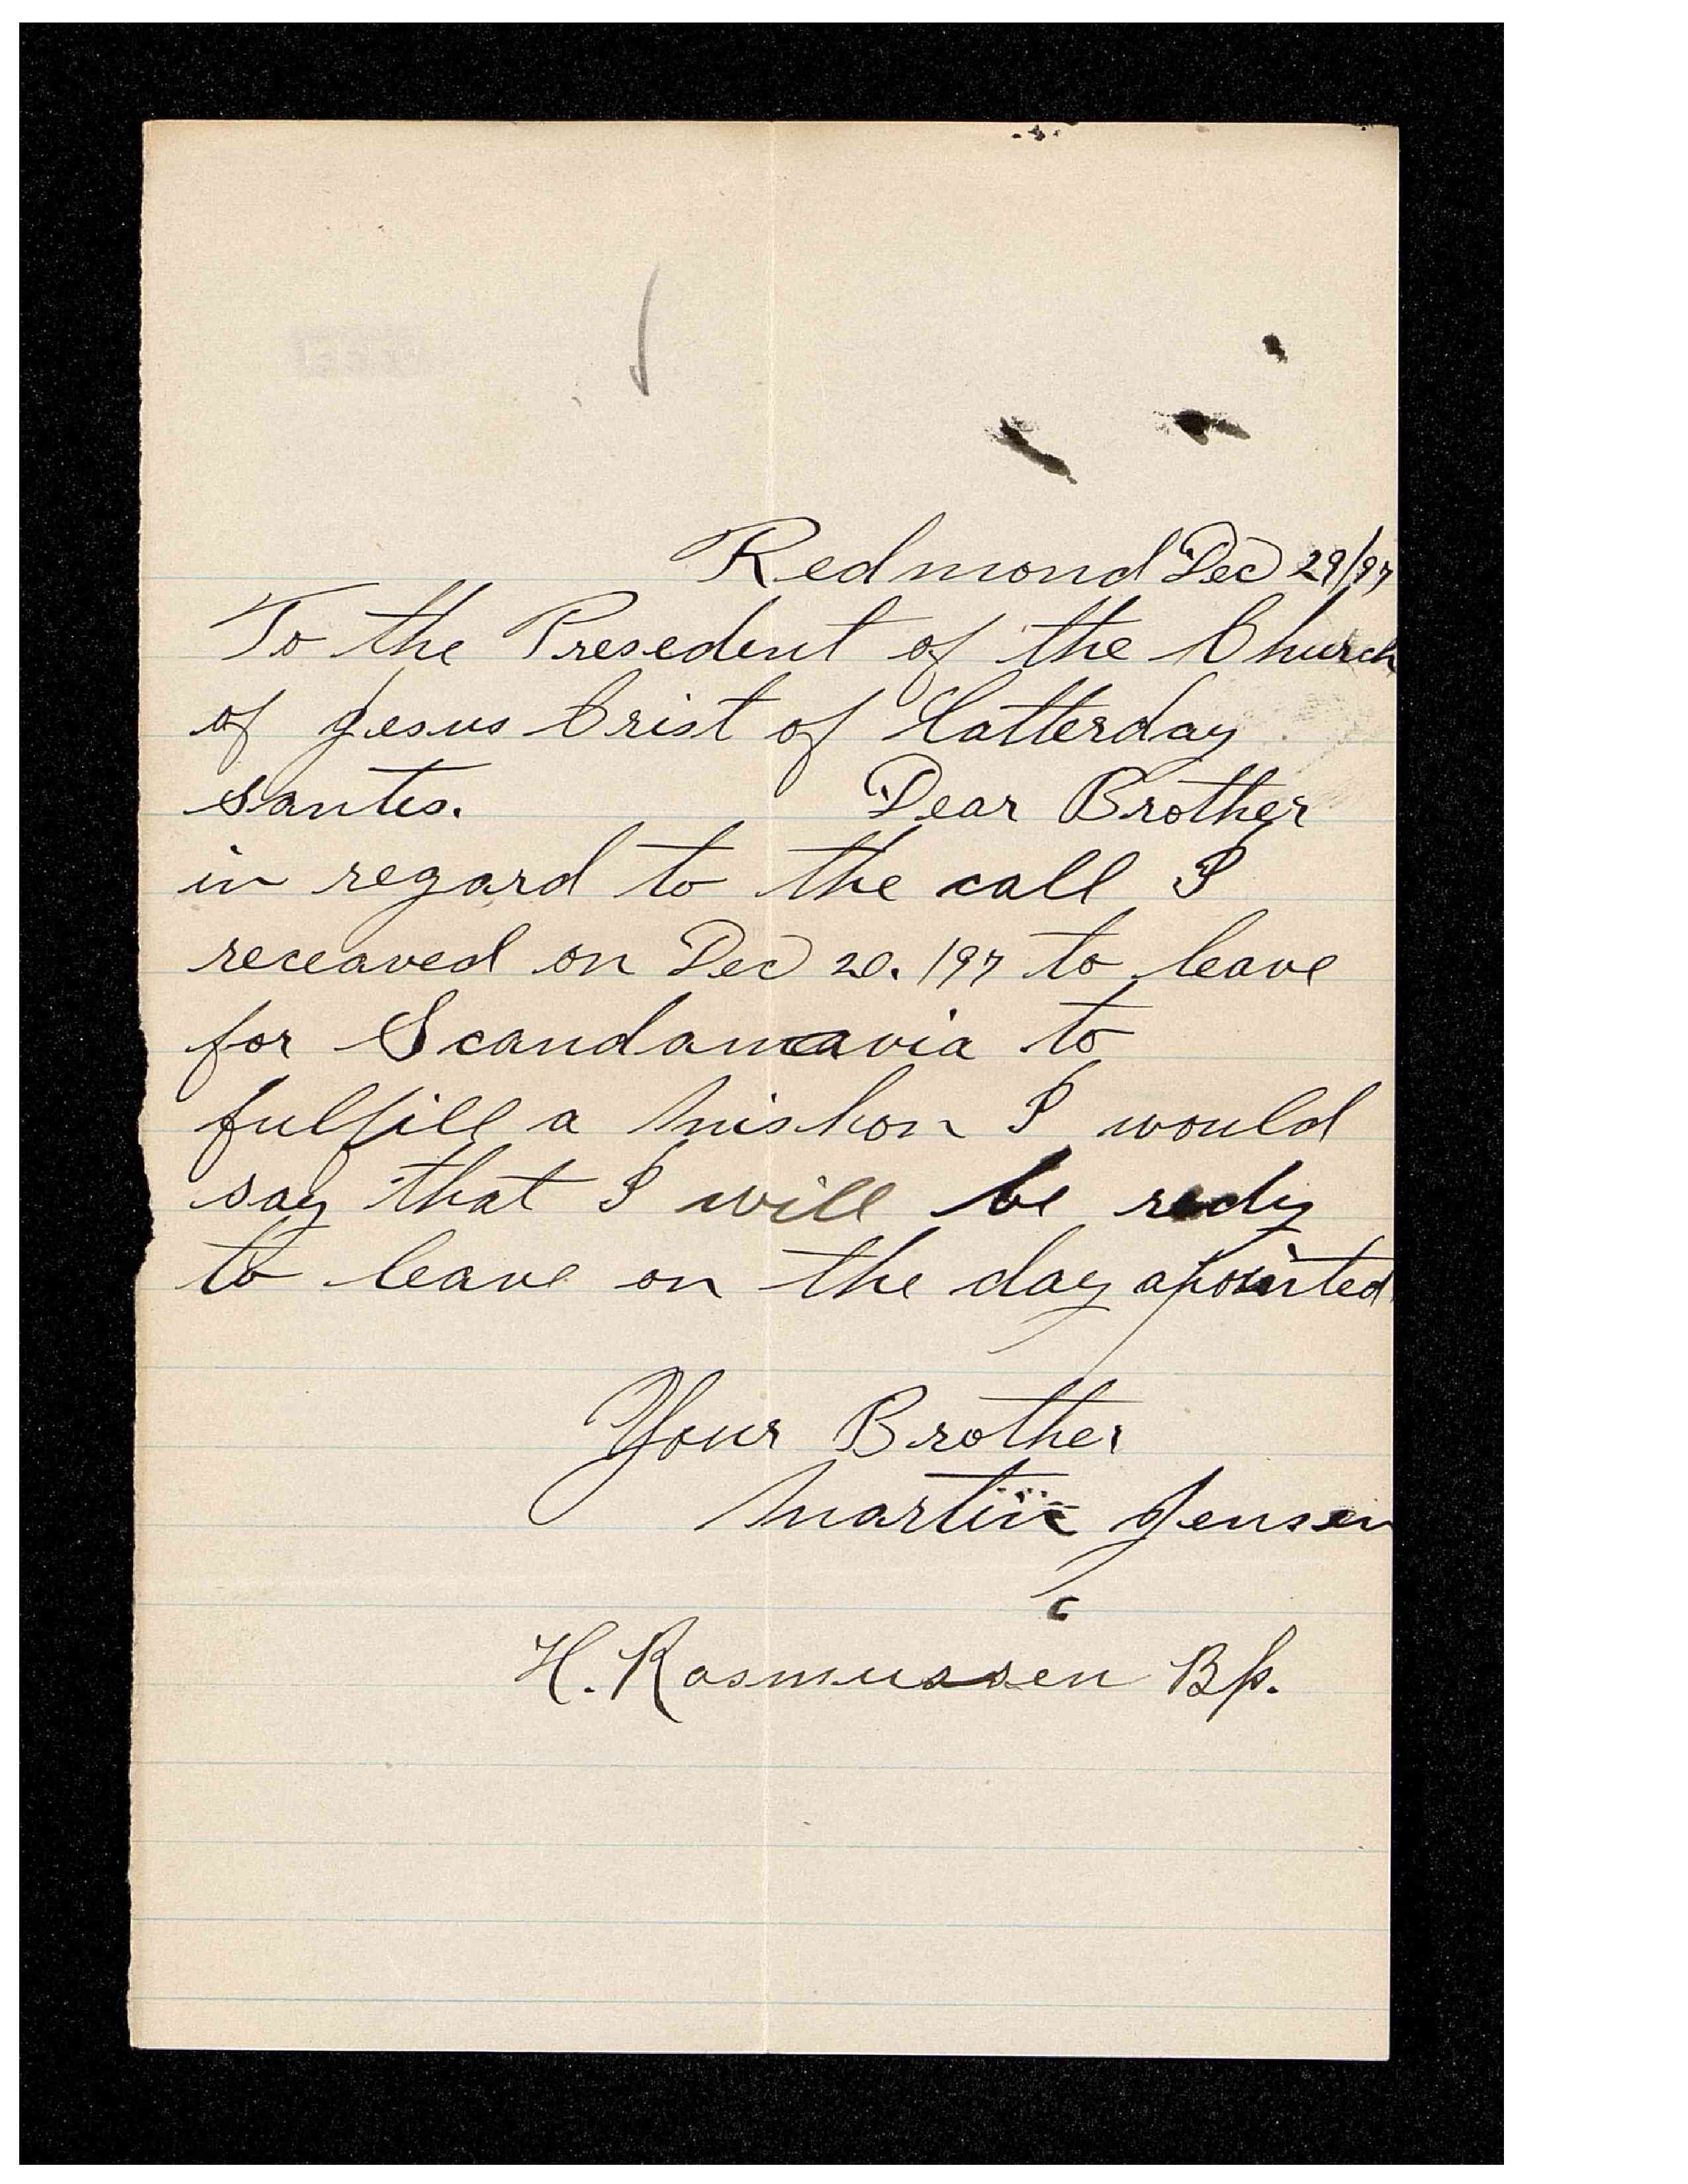 Redmond Dec 29/97
To the Presedent of the Church
of Jesus Crist of Latterday
santes. Dear Brother
in regard to the call I
receaved on Dec 20. /97 to leave
for Scandamavia to
fulfill a mishon I would
say that I will be redy
to leave on the day apointed
Your Brother
Martin Jensen
H. Rasmussen Bp.